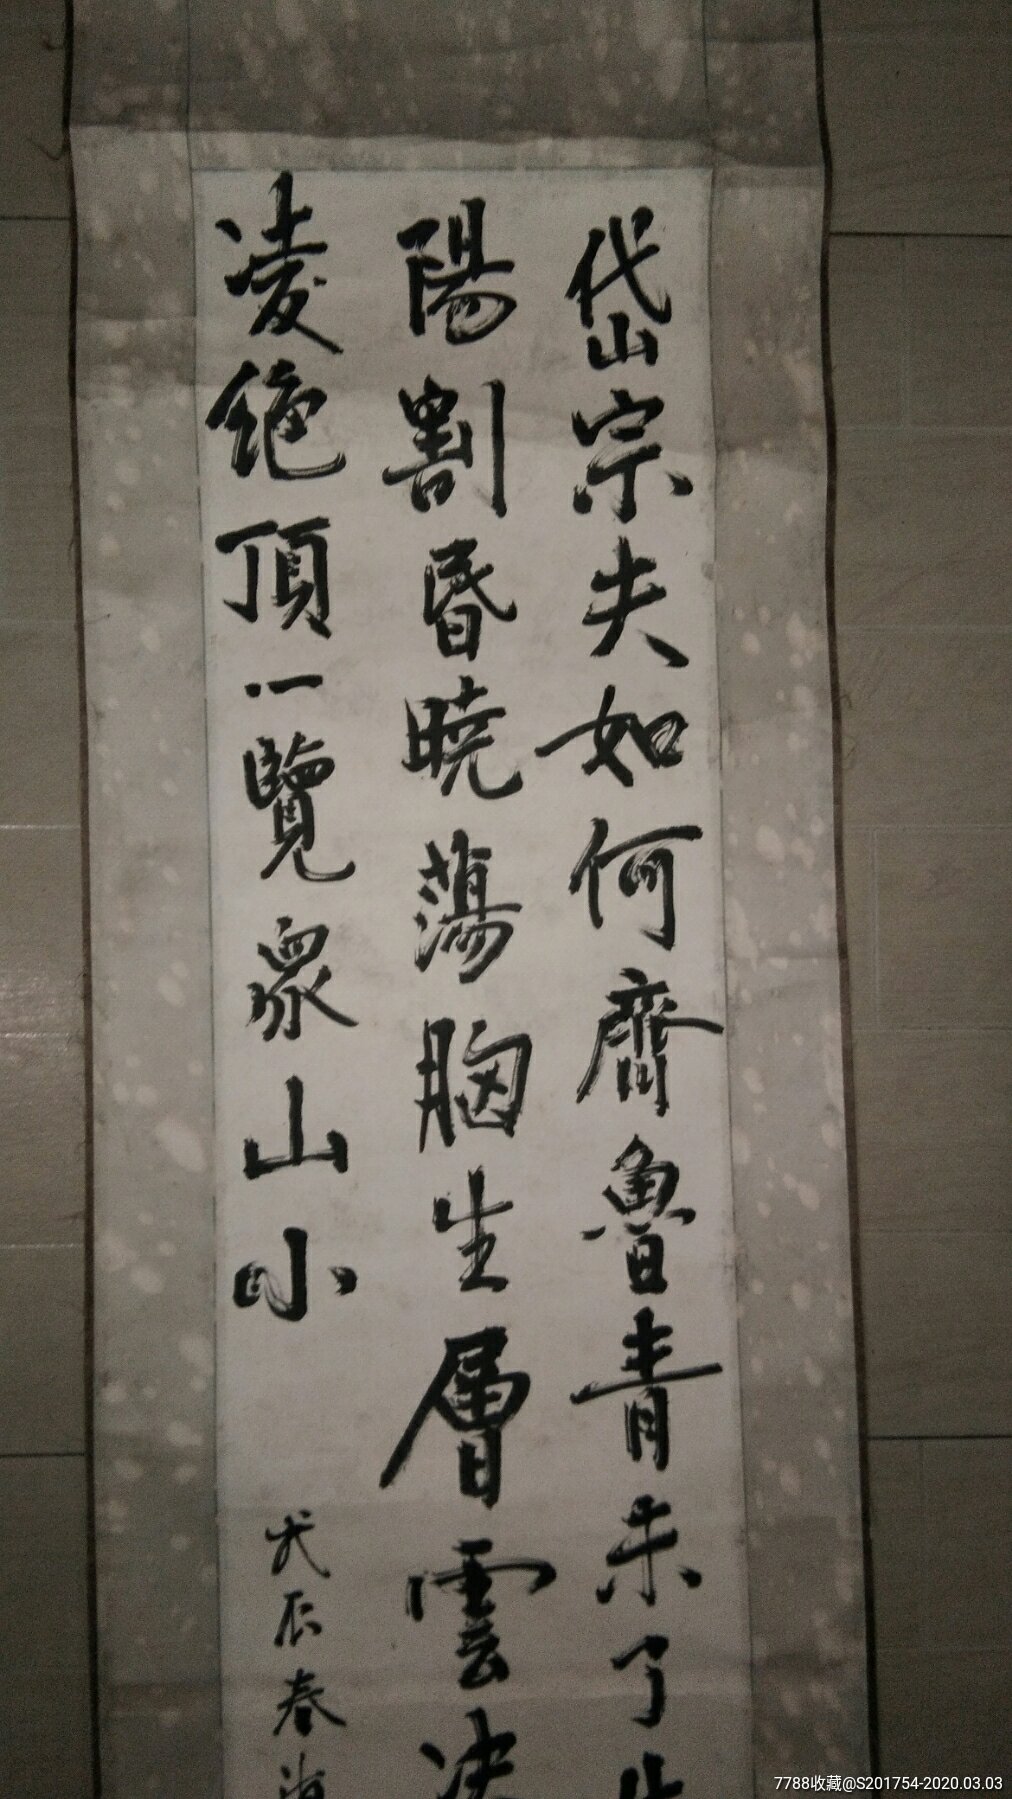 岱宗夫如何齊魯青未了
陽割昏曉蕩胸生層雲决
凌絶頂一覽衆山小
戊辰春
7788收藏@S201754-2020.03.03